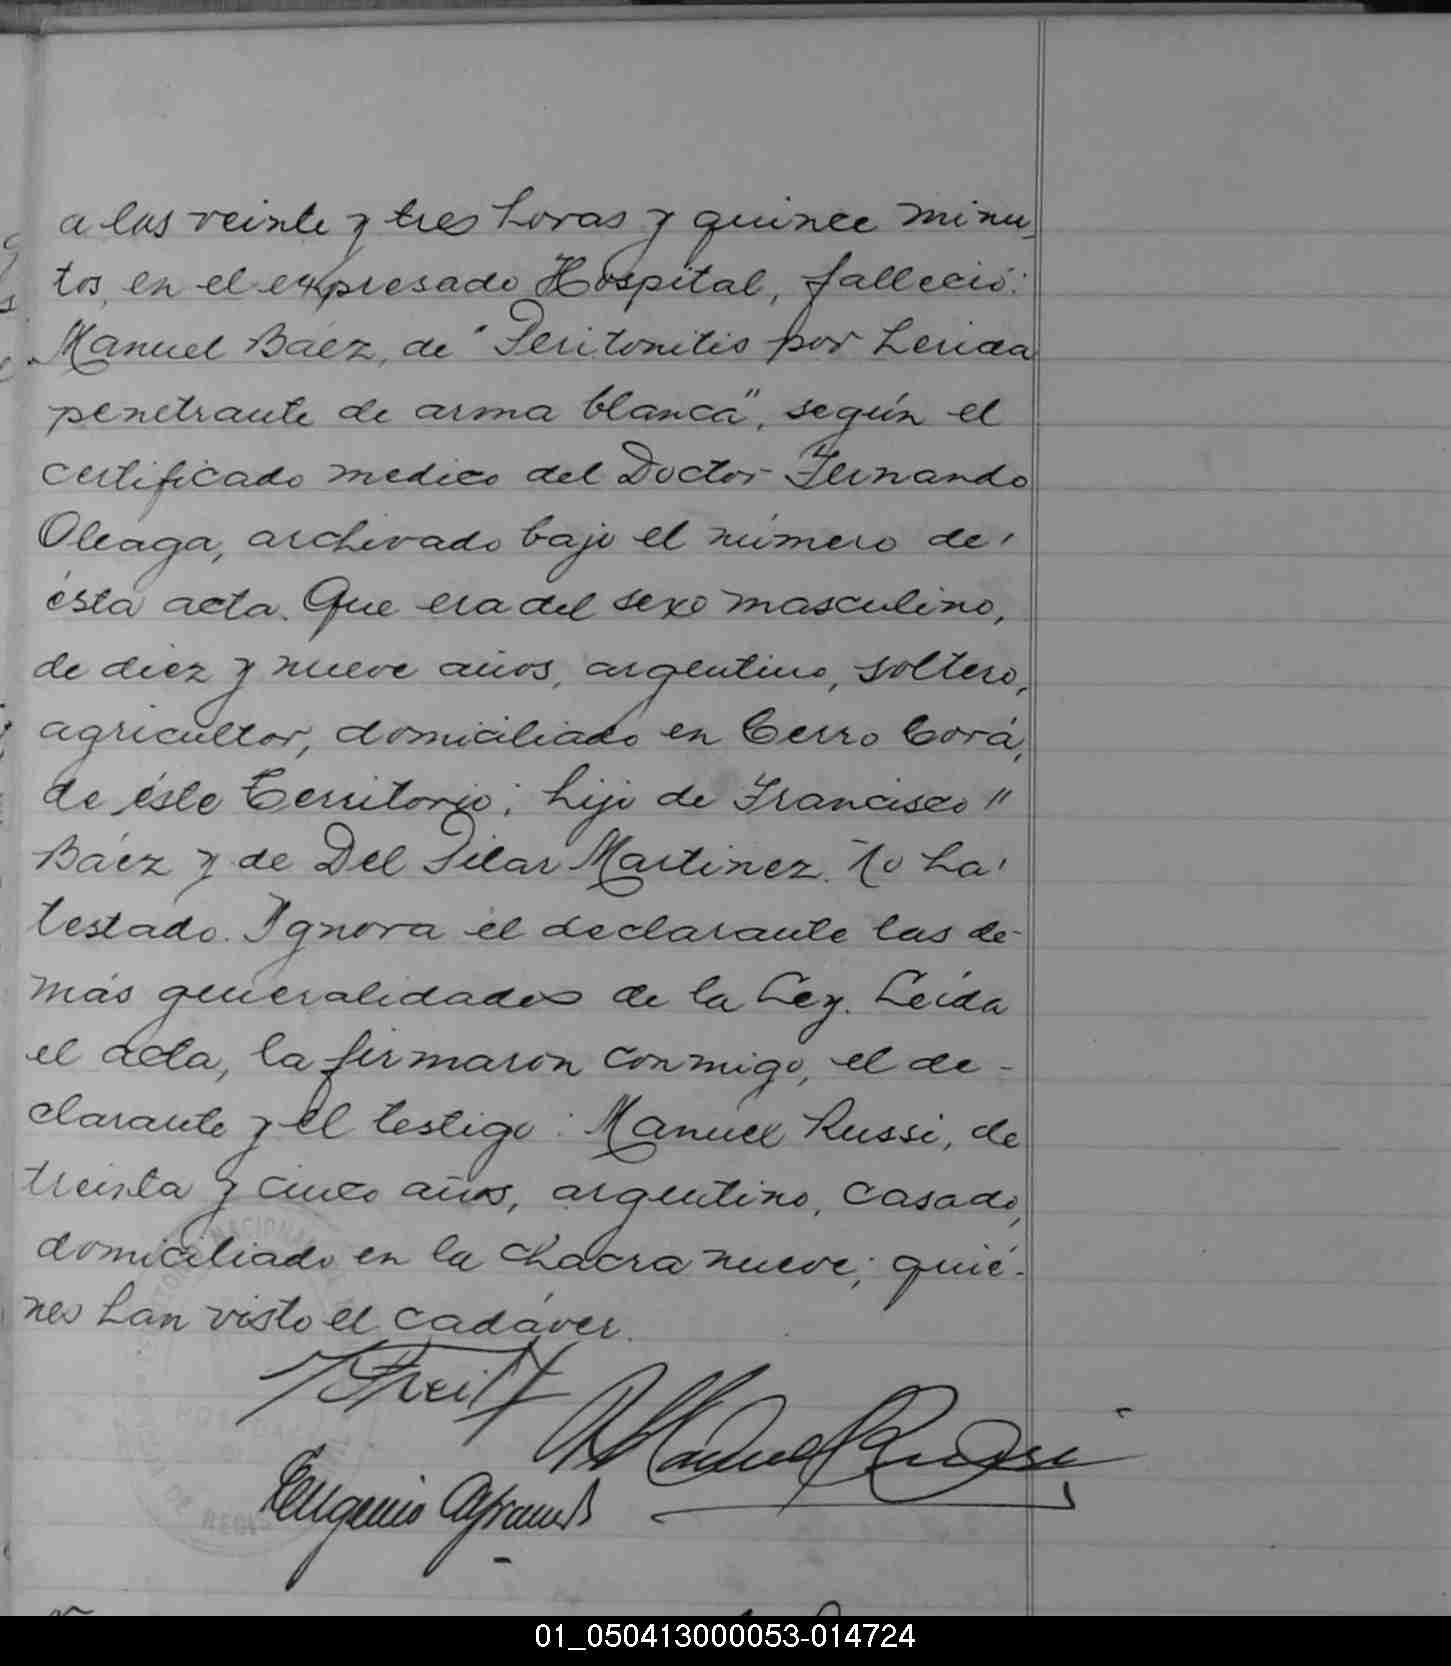 a las veinte y tres horas y quince minu_
tos, en el expresado Hospital, falleció:
Manuel Báez, de "Peritonitis por herida
penetrante de arma blanca", según el
certificado medico del Doctor Fernando
Oleaga, archivado bajo el número de
ésta acta. Que era del sexo masculino,
de diez y nueve años, argentino, soltero,
agricultor, domiciliado en Cerro Corá,
de éste Territorio; hijo de Francisco "
Báez y de Del Pilar Martinez. No ha
testado. Ignora el declarante las de-
más generalidades de la Ley. Leída
el acta, la firmaron conmigo, el de-
clarante y el testigo: Manuel Russi, de
treinta y cinco años, argentino, casado,
domiciliado en la chacra nueve; quié-
nes han visto el cadáver.
Manuel Russi
Eugenio
01_050413000053-014724